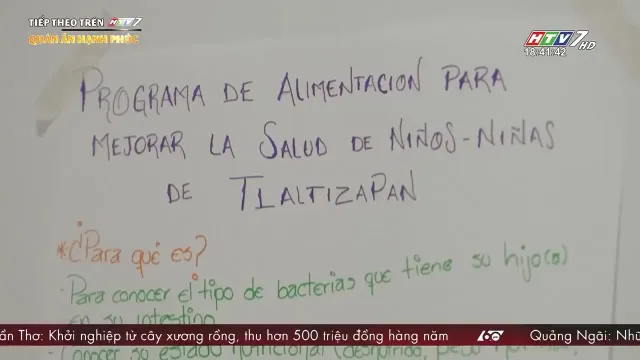 TIẾP THEO TRÊN HTV7
QUÁN ĂN HẠNH PHÚC
HTV7 HD
18:41:42
PROGRAMA DE ALIMENTACION PARA
MEJORAR LA SALUD DE NIÑOS-NIÑAS
DE TLALTIZAPAN
*¿Para qué es?
Para conocer el tipo de bacterias que tiene su hijo(a)
en su intestino
Conocer su estado nutricional (desnutrido, peso
ần Thơ: Khởi nghiệp từ cây xương rồng, thu hơn 500 triệu đồng hàng năm
Quảng Ngãi: Nhữ